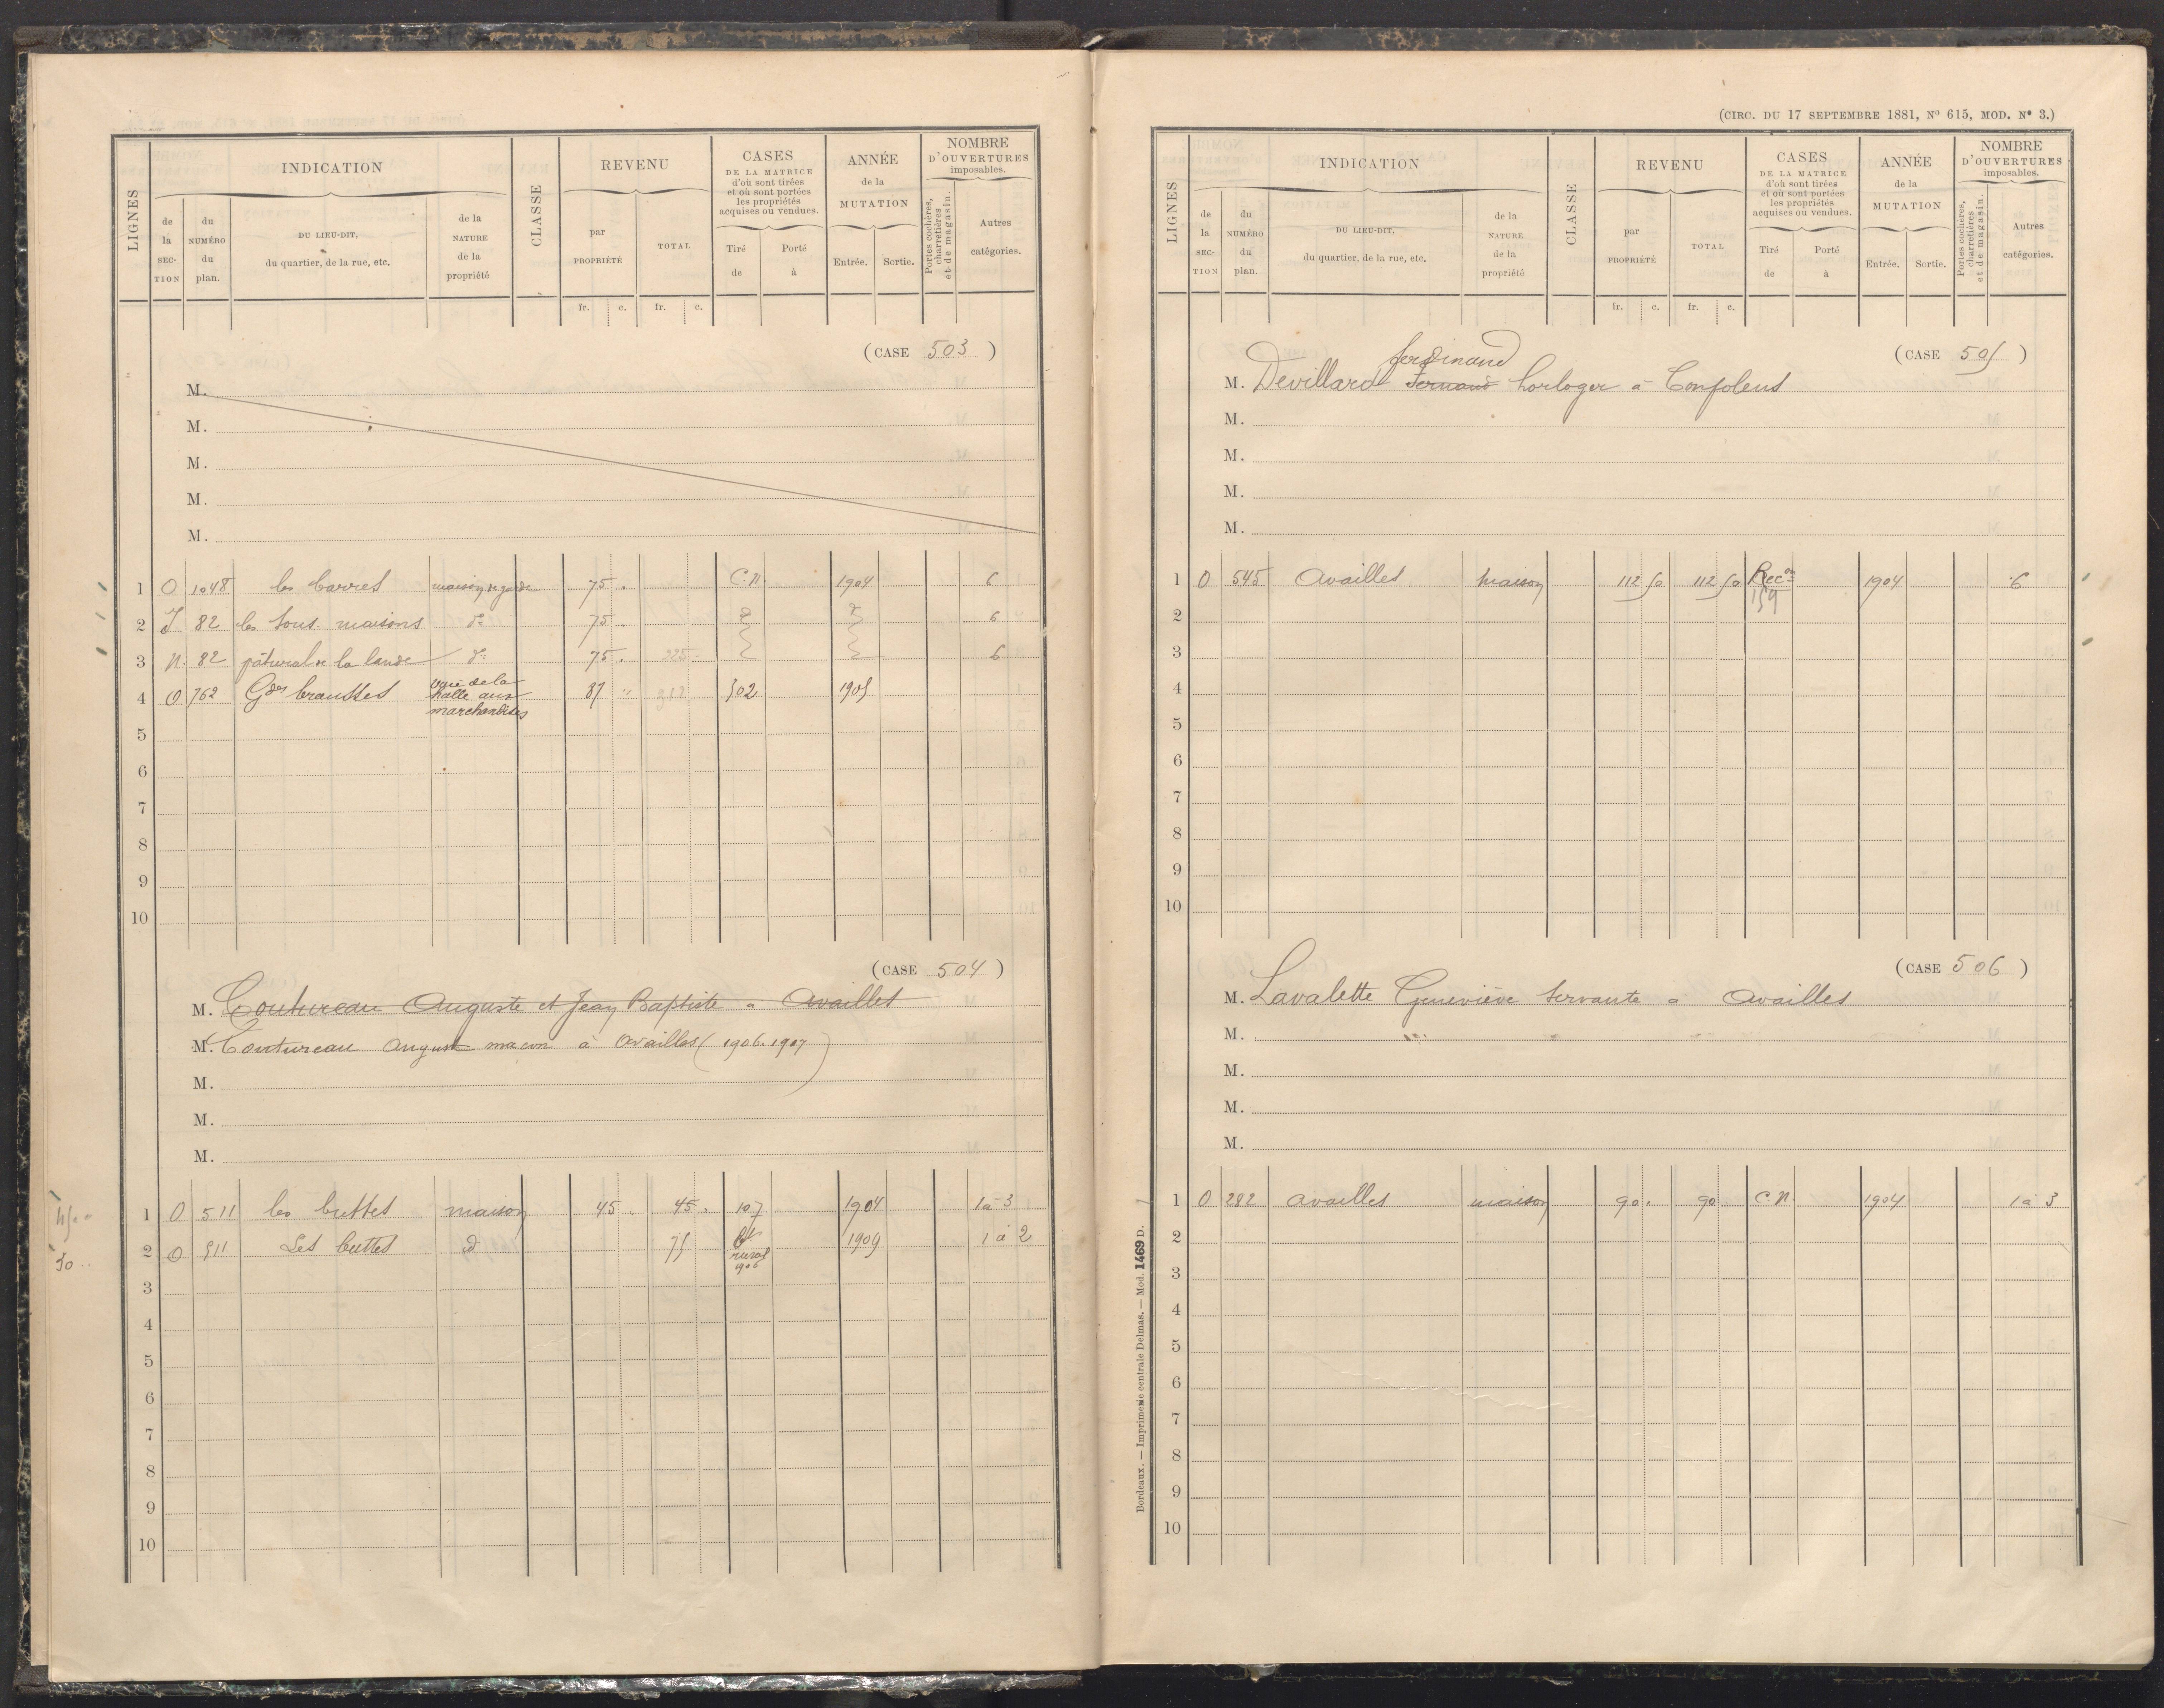 LIGNES
INDICATION
de la SECTION
du NUMÉRO du plan.
DU LIEU-DIT, du quartier, de la rue, etc.
de la NATURE de la propriété
CLASSE
REVENU
par PROPRIÉTÉ
TOTAL
fr. c. fr. c.
CASES DE LA MATRICE d'où sont tirées et où sont portées les propriétés acquises ou vendues.
Tiré de
Porté à
ANNÉE de la MUTATION
Entrée. Sortie.
NOMBRE D'OUVERTURES imposables.
Portes cochères, charretières et de magasin.
Autres catégories.
(CASE 503)
M.
M.
M.
M.
M.
1 O 1048 les barres maison de garde 75 . C.N. 1904 6
2 J 82 les sous maisons do 75 . 6
3 N. 82 pâtural de la lande do 75 . 225 6
4 O 762 Gdes brousses voie de la halle aux marchandises 87 " 312 502 1905
5
6
7
8
9
10
(CASE 504)
M. Coutureau Auguste et Jean Baptiste à Availles
M. Coutureau August macon à Availles (1906.1907)
M.
M.
M.
1 O 511 les buttes maison 45 . 45 . 107 1904 1 à 3
2 O 511 Les buttes d 75 Bt rural 1906 1909 1 à 2
3
4
5
6
7
8
9
10
(CIRC. DU 17 SEPTEMBRE 1881, No 615, MOD. No 3.)
LIGNES
INDICATION
de la SECTION
du NUMÉRO du plan.
DU LIEU-DIT, du quartier, de la rue, etc.
de la NATURE de la propriété
CLASSE
REVENU
par PROPRIÉTÉ
TOTAL
fr. c. fr. c.
CASES DE LA MATRICE d'où sont tirées et où sont portées les propriétés acquises ou vendues.
Tiré de
Porté à
ANNÉE de la MUTATION
Entrée. Sortie.
NOMBRE D'OUVERTURES imposables.
Portes cochères, charretières et de magasin.
Autres catégories.
(CASE 505)
ferdinand
M. Devillard Fernand horloger à Confolens
M.
M.
M.
M.
1 O 545 Availles maison 112 50 112 50 Recon 159 1904 6
2
3
4
5
6
7
8
9
10
(CASE 506)
M. Lavalette Geneviève servante à Availles
M.
M.
M.
M.
1 O 282 Availles maison 90 . 90 C.N. 1904 1 à 3
2
3
4
5
6
7
8
9
10
Bordeaux. — Imprimerie centrale Delmas. — Mod. 1469 D.